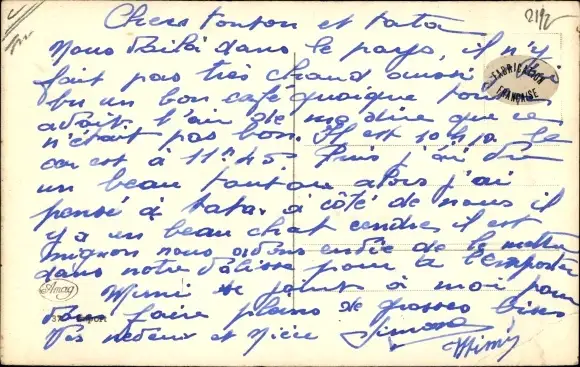 Chers tonton et tata
2192
Nous voilà dans le pays, il n'y
fait pas très chaud aussi j'ai
bu un bon café quoique tonton
avait l'air de me dire que ce
n'était pas bon. Il est 10h10 le
car est à 11h45 Puis j'ai vu
un beau toutou alors j'ai
pensé à tata. à côté de nous il
y a un beau chat cendré il est
mignon nous avons envie de le mettre
dans notre valise pour l'emporter
Mimi se joint à moi pour
vous faire pleins de grosses bises
Vos neveux et nièce Simone
Mimi
FABRICATION
FRANÇAISE
Amag